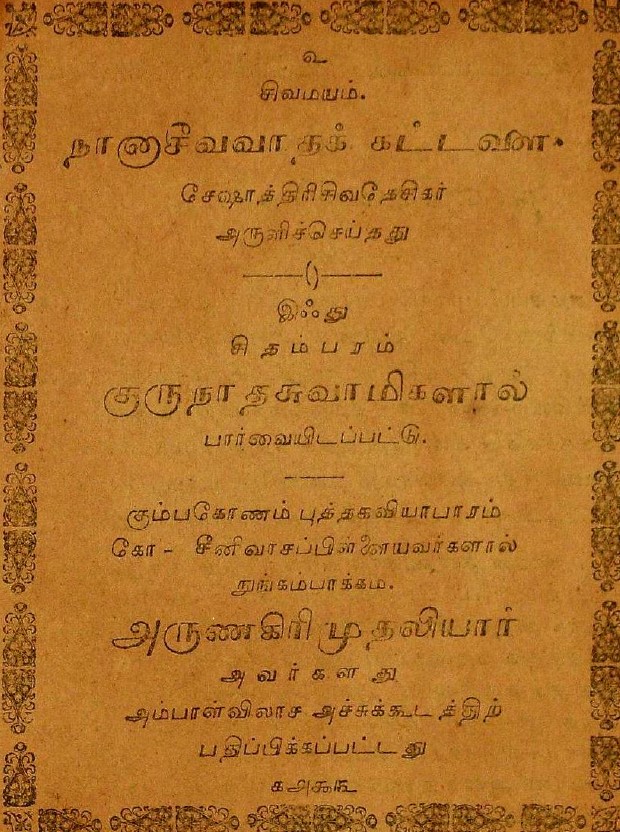 உ
சிவமயம்.
நானாசீவவாதக் கட்டளை.
சேஷாத்திரிசிவதேசிகர்
அருளிச்செய்தது
இஃது
சிதம்பரம்
குருநாதசுவாமிகளால்
பார்வையிடப்பட்டு.
கும்பகோணம் புத்தகவியாபாரம்
கோ - சீனிவாசப்பிள்ளையவர்களால்
நுங்கம்பாக்கம்.
அருணகிரிமுதலியார்
அவர்களது
அம்பாள்விலாச அச்சுக்கூடத்திற்
பதிப்பிக்கப்பட்டது
௧௮௭௩